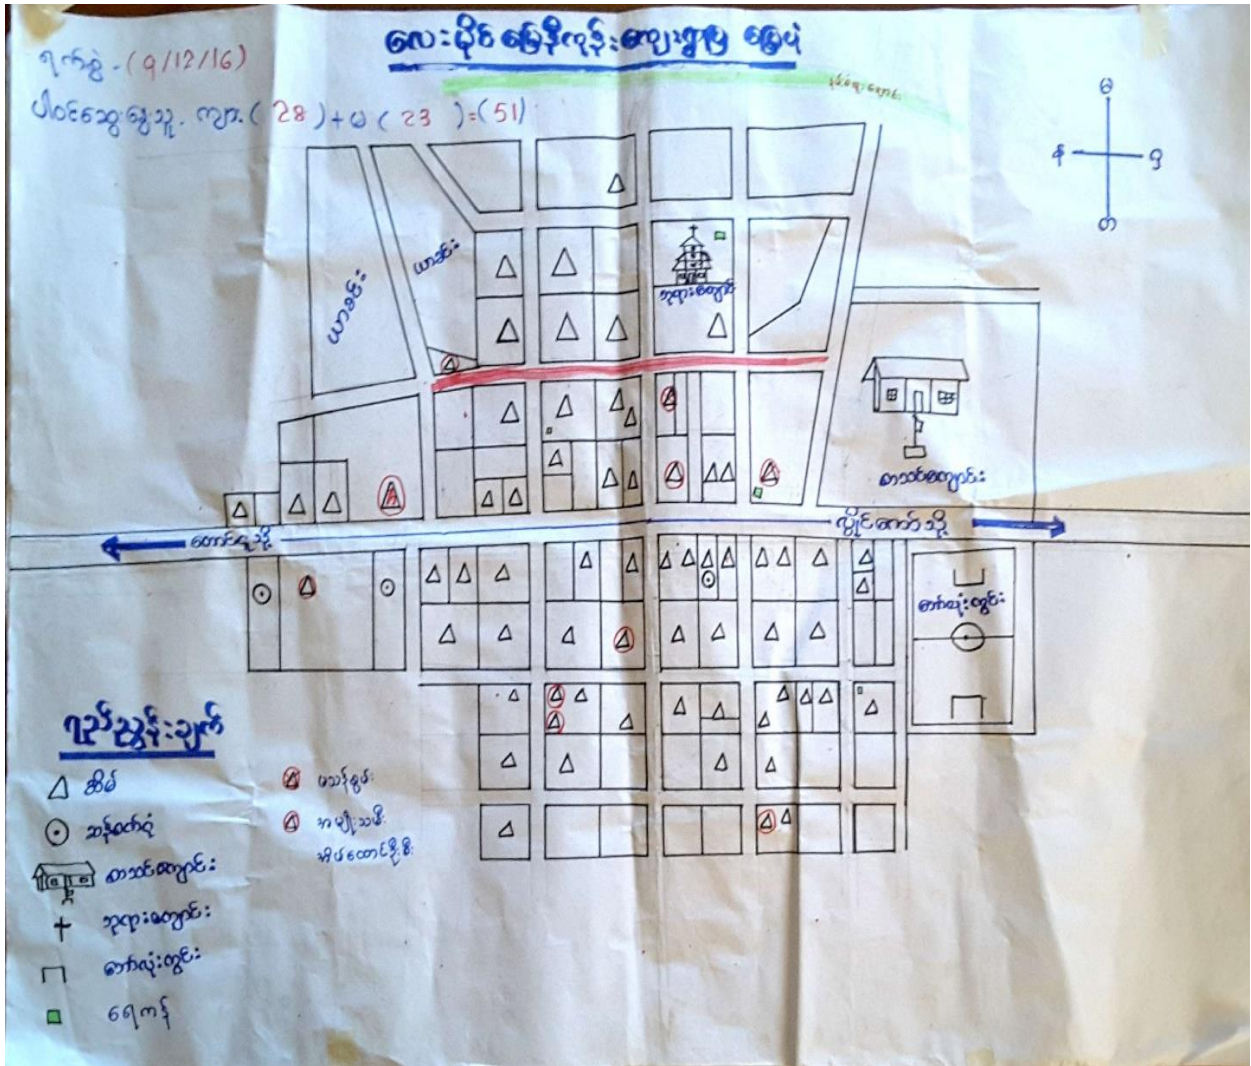 လေးမိုင် မြေနီကုန်းကျေးရွာပြ မြေပုံ
ရက်စွဲ - (9/12/16)
ပါဝင်ဆွေးနွေးသူ. ကျား ( 28 ) + မ ( 23 ) = (51)
မ
န
တ
ယာခင်း
ယာခင်း
ဘုရားကျောင်း
စာသင်ကျောင်း
တောင်ငူသို့
လွိုင်ကော်သို့
ဘော်လုံးကွင်း
ရည်ညွှန်းချက်
အိမ်
ဆန်စက်ပုံ
စာသင်ကျောင်း
ဘုရားကျောင်း
ဘော်လုံးကွင်း
ရေကန်
မသန်စွမ်း
အမျိုးသမီး
အိမ်ထောင်ဦးစီး